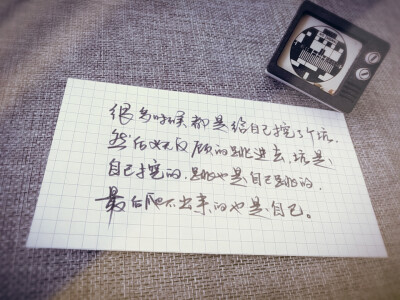 很多时候都是给自己挖了个坑,
然后义无反顾的跳进去,坑是
自己挖的,跳也是自己跳的,
最后爬不出来的也是自己。